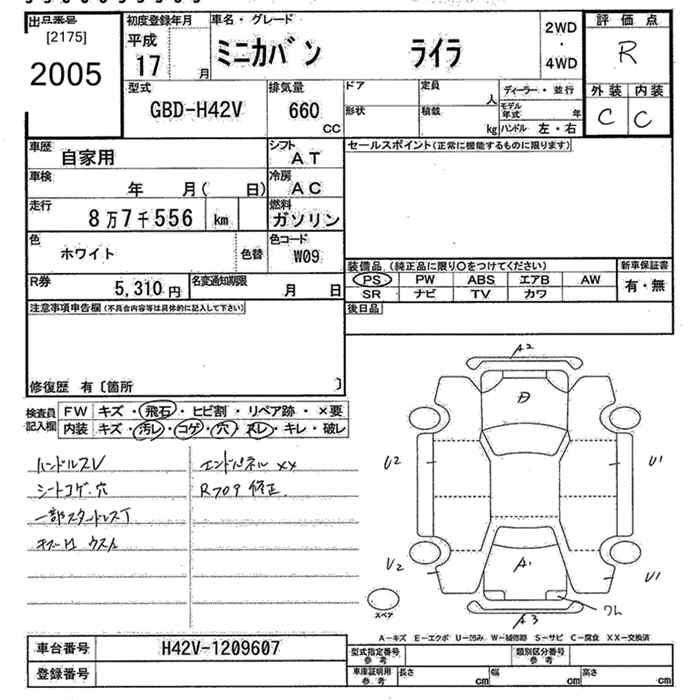 出品番号
[2175]
2005
初度登録年月
平成
17 月
車名・グレード
ミニカバン ライラ
2WD
・
4WD
評価点
R
外装 内装
C C
型式
GBD-H42V
排気量
660
CC
ドア
形状
定員
人
積載
kg
ディーラー・並行
モデル年式 年
ハンドル 左・右
車歴
自家用
シフト
AT
車検
年 月( 日)
冷房
AC
走行
8万7千556 km
燃料
ガソリン
色
ホワイト
色替
色コード
W09
R券
5,310円
名変通知期限
月 日
セールスポイント(正常に機能するものに限ります)
装備品(純正品に限り○をつけてください)
PS PW ABS エアB AW
SR ナビ TV カワ
新車保証書
有・無
後日品
注意事項申告欄(不具合内容等は具体的に記入して下さい)
修復歴 有〔箇所 〕
検査員記入欄
FW キズ・飛石・ヒビ割・リペア跡・×要
内装 キズ・汚レ・コゲ・穴・スレ・キレ・破レ
ハンドルスレ
シートコゲ・穴
一部スタッドレスT
エンドパネル XX
Rフロア 修正
A2
U2
U1
A1
U2
U1
A3
ワレ
スペア
A-キズ E-エクボ U-凹み W-補修跡 S-サビ C-腐食 XX-交換済
車台番号
H42V-1209607
登録番号
型式指定番号
参考
類別区分番号
参考
車庫証明用
参考
長さ cm
幅 cm
高さ cm